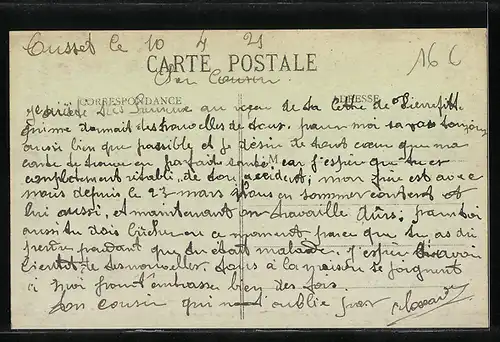 Cusset le 10 4 21
16 C
CARTE POSTALE
Cher Cousin.
CORRESPONDANCE ADRESSE
je été très heureux au reçu de ta lettre de Pierrefitte
qui me donnait des nouvelles de tous. pour moi sa va toujours
aussi bien que possible et je désire de tout coeur que ma
carte te trouve en parfaite santé car j'espère que tu es
complètement rétabli, de ton accident; mon frère est avec
nous depuis le 23 mars nous en sommes content et
lui aussi, et maintenant on travaille durs. pour toi
aussi tu dois bûcher en ce moment parce que tu as du
perdre pendant que tu était malade. j'espère avoir
bientôt de tes nouvelles. tous à la maison se joignent
à moi pour t'embrasser bien des fois.
Ton cousin qui ne t'oublie pas